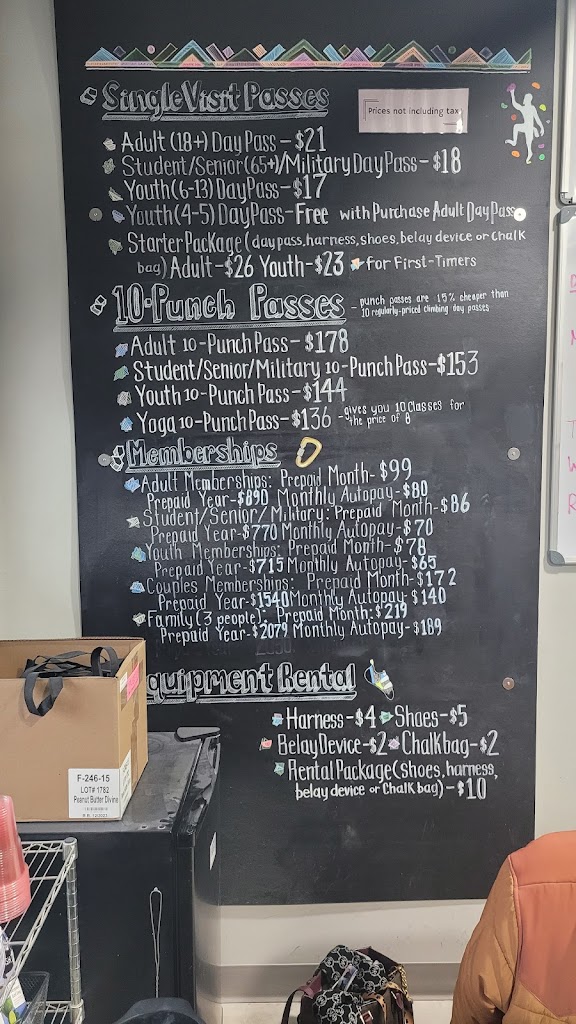 Single Visit Passes
Prices not including tax
Adult (18+) Day Pass - $21
Student/Senior (65+)/Military Day Pass - $18
Youth (6-13) Day Pass - $17
Youth (4-5) Day Pass - Free with Purchase Adult Day Pass
Starter Package (day pass, harness, shoes, belay device or Chalk
bag) Adult - $26 Youth - $23 for First-Timers
10-Punch Passes
- punch passes are 15% cheaper than
10 regularly-priced climbing day passes
Adult 10-Punch Pass - $178
Student/Senior/Military 10-Punch Pass - $153
Youth 10-Punch Pass - $144
Yoga 10-Punch Pass - $136 - gives you 10 Classes for
the price of 8
Memberships
Adult Memberships: Prepaid Month - $99
Prepaid Year - $890 Monthly Autopay - $80
Student/Senior/Military: Prepaid Month - $86
Prepaid Year - $770 Monthly Autopay - $70
Youth Memberships: Prepaid Month - $78
Prepaid Year - $715 Monthly Autopay - $65
Couples Memberships: Prepaid Month - $172
Prepaid Year - $1540 Monthly Autopay - $140
Family (3 people): Prepaid Month: $219
Prepaid Year - $2079 Monthly Autopay - $189
quipment Rental
Harness - $4 Shoes - $5
Belay Device - $2 Chalk bag - $2
Rental Package (shoes, harness,
belay device or Chalk bag) - $10
F-246-15
LOT# 1782
Peanut Butter Divine